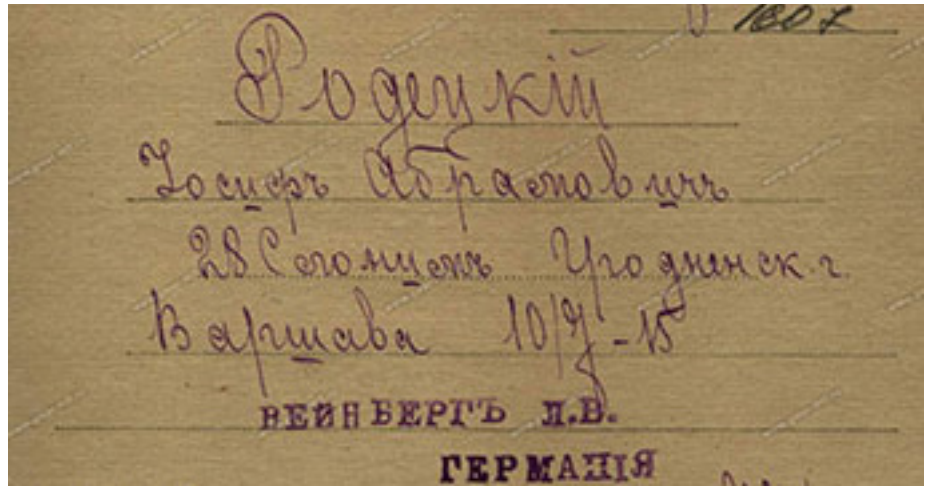 1807
Родецкій
Іосифъ Абрамовичъ
28 Слонимск. г.
Варшава 10/V-15
ВЕЙНБЕРГЪ Л.В.
ГЕРМАНІЯ